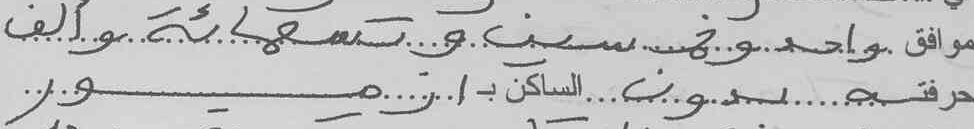 موافق واحد وخمسين و تسعمائة وألف
حرفته بدون الساكن بـ ازمور